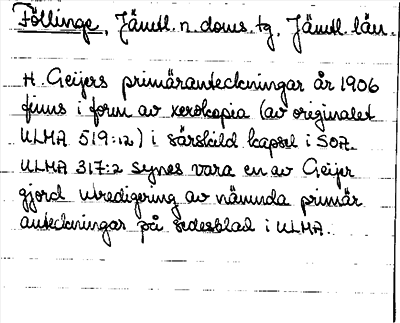 Föllinge, Jämtl. n. doms. tg, Jämtl. län.
H. Geijers primäranteckningar år 1906
finns i form av xerokopia (av originalet
ULMA 519:12) i särskild kapsel i SOA.
ULMA 317:2 synes vara en av Geijer
gjord utredigering av nämnda primär
anteckningar på sedesblad i ULMA.